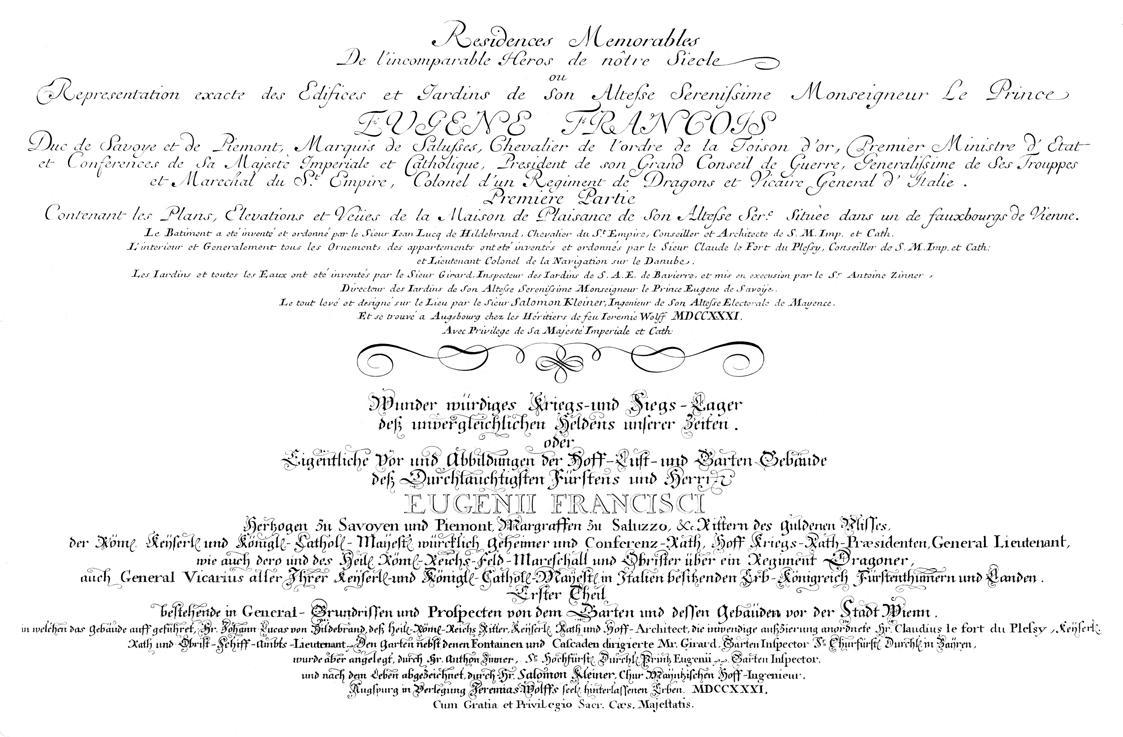 Residences Memorables
De l'incomparable Heros de nôtre Siecle
ou
Representation exacte des Edifices et Jardins de Son Altesse Serenissime Monseigneur Le Prince
EUGENE FRANCOIS
Duc de Savoye et de Piemont, Marquis de Salusses, Chevalier de l'ordre de la Toison d'or, Premier Ministre d'Etat
et Conferences de Sa Majesté Imperiale et Catholique, President de son Grand Conseil de Guerre, Generalissime de Ses Trouppes
et Marechal du St. Empire, Colonel d'un Regiment de Dragons et Vicaire General d'Italie.
Premiere Partie
Contenant les Plans, Elevations et Veües de la Maison de Plaisance de Son Altesse Sere. Située dans un de fauxbourgs de Vienne.
Le Batiment a eté inventé et ordonné par le Sieur Iean Lucq de Hildebrand, Chevalier du St. Empire, Conseiller et Architecte de S. M. Imp. et Cath.
L'interieur et Generalement tous les Ornements des appartements ont eté inventés et ordonnés par le Sieur Claude le Fort du Plessy, Conseiller de S. M. Imp. et Cath:
et Lieutenant Colonel de la Navigation sur le Danube.
Les Iardins et toutes les Eaux ont eté inventés par le Sieur Girard, Inspecteur des Iardins de S. A. E. de Baviere, et mis en execusion par le Sr. Antoine Zinner,
Directeur des Iardins de Son Altesse Serenissime Monseigneur le Prince Eugene de Savoije.
Le tout levé et designé sur le Lieu par le Sieur Salomon Kleiner, Ingenieur de Son Altesse Electorale de Mayence.
Et se trouve a Augsbourg chez les Héritiers de feu Ieremie Wolff MDCCXXXI.
Avec Privilege de sa Majesté Imperiale et Cath:
Wunder würdiges Kriegs-und Siegs-Lager
deß unvergleichlichen Heldens unserer Zeiten.
oder
Eigentliche Vor und Abbildungen der Hoff-Lust-und Garten Gebäude
deß Durchlauchtigsten Fürstens und Herrn
EUGENII FRANCISCI
Hertzogen zu Savoyen und Piemont, Marggraffen zu Saluzzo, &c. Rittern des guldenen Vlisses,
der Röm. Keyserl. und Königl-Cathol-Majest. würcklich geheimer und Conferenz-Rath, Hoff Kriegs-Rath-Præsidenten, General Lieutenant,
wie auch dero und des Heil. Röm-Reichs-Feld-Mareschall und Obrister über ein Regiment Dragoner,
auch General Vicarius aller Ihrer Keyserl-und Königl-Cathol-Majest. in Italien besitzenden Erb-Königreich Fürstenthümern und Landen.
Erster Theil
bestehende in General-Grundrissen und Prospecten von dem Garten und dessen Gebäuden vor der Stadt Wienn.
in welchen das Gebäude auffgeführet, Hr. Johann Lucas von Hildebrand, deß Heil-Röm-Reichs Ritter, Keyserl. Rath und Hoff-Architect, die inwendige außzierung anordnete Hr. Claudius le fort du Plessy, Keyserl.
Rath und Obrist-Schiff-Ambts-Lieutenant. Den Garten nebst denen Fontainen und Cascaden dirigierte Mr. Girard, Garten Inspector Sr. Churfürstl. Durchl. in Bäyren,
wurde aber angelegt, durch Hr. Anthon Zinner, Sr. Hochfürstl. Durchl. Printz Eugenii Garten Inspector.
und nach dem Leben abgezeichnet, durch Hr. Salomon Kleiner, Chur Mayntzischen Hoff-Ingenieur.
Augspurg in Verlegung Jeremias Wolffs seel. hinterlassenen Erben. MDCCXXXI.
Cum Gratia et Privilegio Sacr. Cæs. Majestatis.